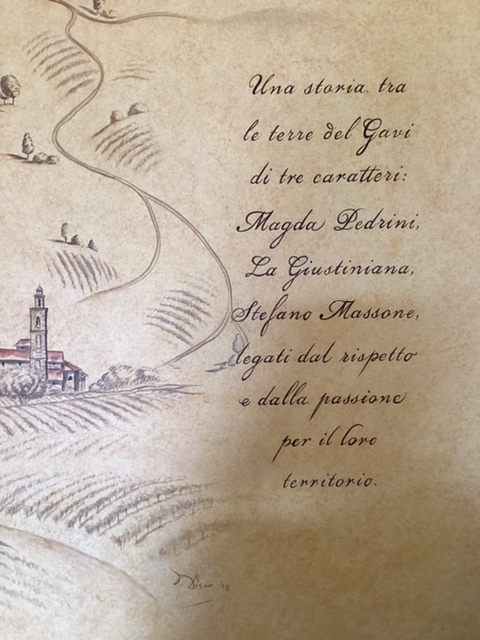 Una storia tra
le terre del Gavi
di tre caratteri:
Magda Pedrini,
La Giustiniana,
Stefano Massone,
legati dal rispetto
e dalla passione
per il loro
territorio.